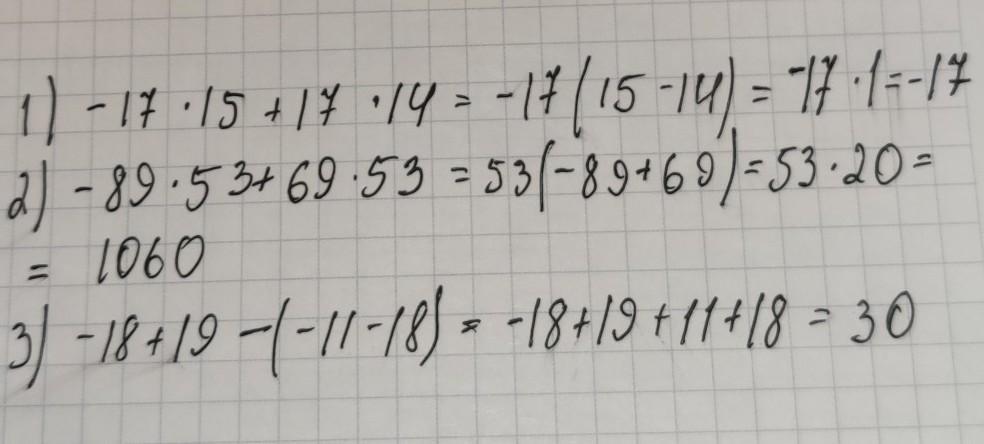 1) -17 · 15 + 17 · 14 = -17 (15 - 14) = -17 · 1 = -17
2) -89 · 53 + 69 · 53 = 53 (-89 + 69) = 53 · 20 =
= 1060
3) -18 + 19 - (-11 - 18) = -18 + 19 + 11 + 18 = 30